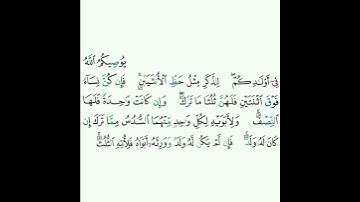 يُوصِيكُمُ ٱللَّهُ
فِىٓ أَوْلَـٰدِكُمْ ۖ لِلذَّكَرِ مِثْلُ حَظِّ ٱلْأُنثَيَيْنِ ۚ فَإِن كُنَّ نِسَآءً
فَوْقَ ٱثْنَتَيْنِ فَلَهُنَّ ثُلُثَا مَا تَرَكَ ۖ وَإِن كَانَتْ وَٰحِدَةً فَلَهَا
ٱلنِّصْفُ ۚ وَلِأَبَوَيْهِ لِكُلِّ وَٰحِدٍ مِّنْهُمَا ٱلسُّدُسُ مِمَّا تَرَكَ إِن
كَانَ لَهُۥ وَلَدٌ ۚ فَإِن لَّمْ يَكُن لَّهُۥ وَلَدٌ وَوَرِثَهُۥٓ أَبَوَاهُ فَلِأُمِّهِ ٱلثُّلُثُ ۚ